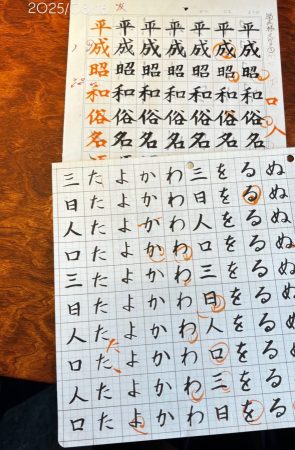 平成昭和俗名
平成昭和俗名
平成昭和俗名
平成昭和俗名
平成昭和俗名
平成昭和俗名
平成昭和俗名
口人
ぬぬぬぬぬぬぬぬ
るるるるるるるるるる
をををををををををを
三日人口三日人口三日
わわわわわわわわわわ
かかかかかかかかかか
よよよよよよよよよよ
たたたたたたたたたた
三日人口三日人口人口